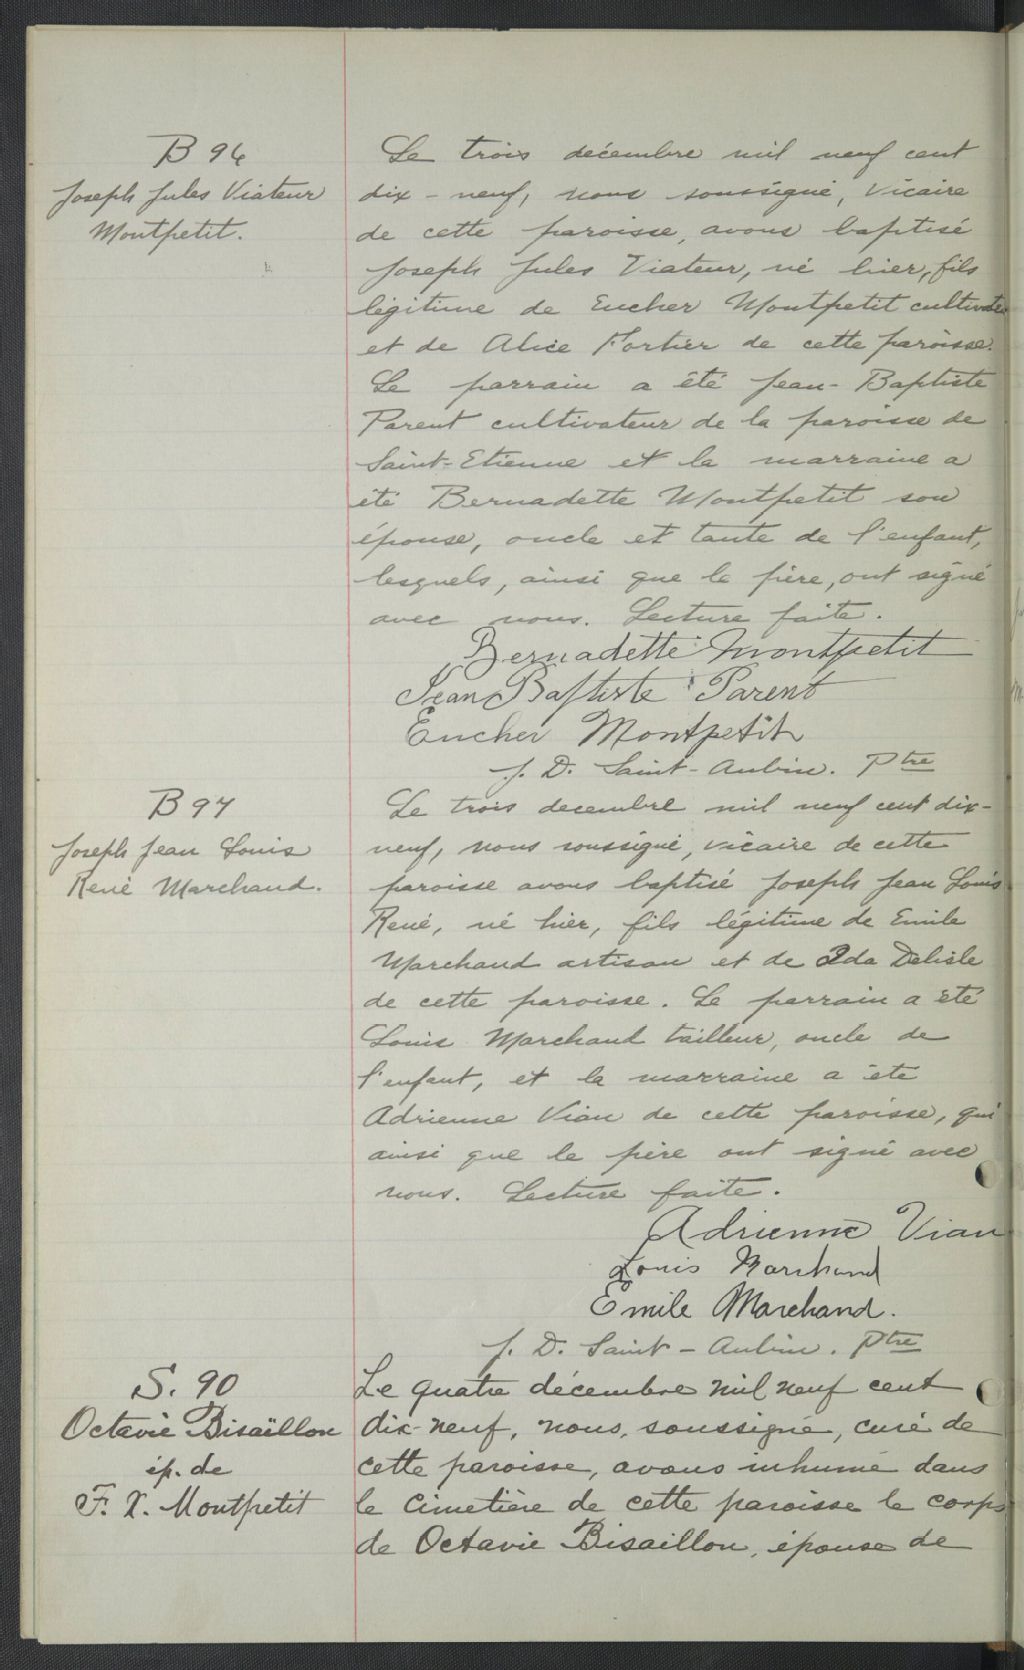 B 96
Joseph Jules Viateur
Montpetit.
Le trois décembre mil neuf cent
dix-neuf, nous soussigné, vicaire
de cette paroisse, avons baptisé
Joseph Jules Viateur, né hier, fils
légitime de Eucher Montpetit cultivateur
et de Alice Fortier de cette paroisse.
Le parrain a été Jean-Baptiste
Parent cultivateur de la paroisse de
Saint-Etienne et la marraine a
été Bernadette Montpetit son
épouse, oncle et tante de l'enfant,
lesquels, ainsi que le père, ont signé
avec nous. Lecture faite.
Bernadette Montpetit
Jean Baptiste Parent
Eucher Montpetit
J. D. Saint-Aubin. Ptre
B 97
Joseph Jean Louis
René Marchand.
Le trois decembre mil neuf cent dix-
neuf, nous soussigné, vicaire de cette
paroisse avons baptisé Joseph Jean Louis
René, né hier, fils légitime de Emile
Marchand artisan et de Ida Delisle
de cette paroisse. Le parrain a été
Louis Marchand tailleur, oncle de
l'enfant, et la marraine a été
Adrienne Viau de cette paroisse, qui
ainsi que le père ont signé avec
nous. Lecture faite.
Adrienne Viau
Louis Marchand
Emile Marchand.
J. D. Saint-Aubin. Ptre
S. 90
Octavie Bisaillon
ép. de
F. X. Montpetit
Le quatre décembre mil neuf cent
dix-neuf, nous, soussigné, curé de
cette paroisse, avons inhumé dans
le cimetière de cette paroisse le corps
de Octavie Bisaillon, épouse de